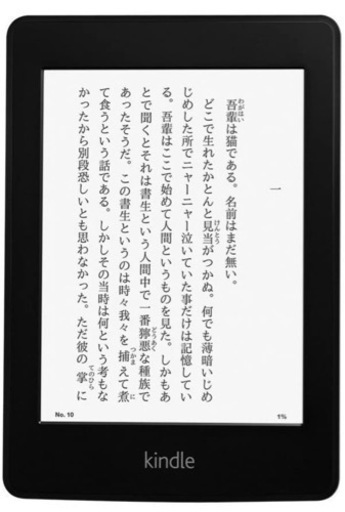 一
吾輩は猫である。名前はまだ無い。
どこで生れたかとんと見当がつかぬ。何でも薄暗いじめ
じめした所でニャーニャー泣いていた事だけは記憶してい
る。吾輩はここで始めて人間というものを見た。しかもあ
とで聞くとそれは書生という人間中で一番獰悪な種族で
あったそうだ。この書生というのは時々我々を捕えて煮
て食うという話である。しかしその当時は何という考もな
かったから別段恐しいとも思わなかった。ただ彼の掌に
わがはい
けんとう
どうあく
つかま
に
てのひら
No. 10
1%
kindle